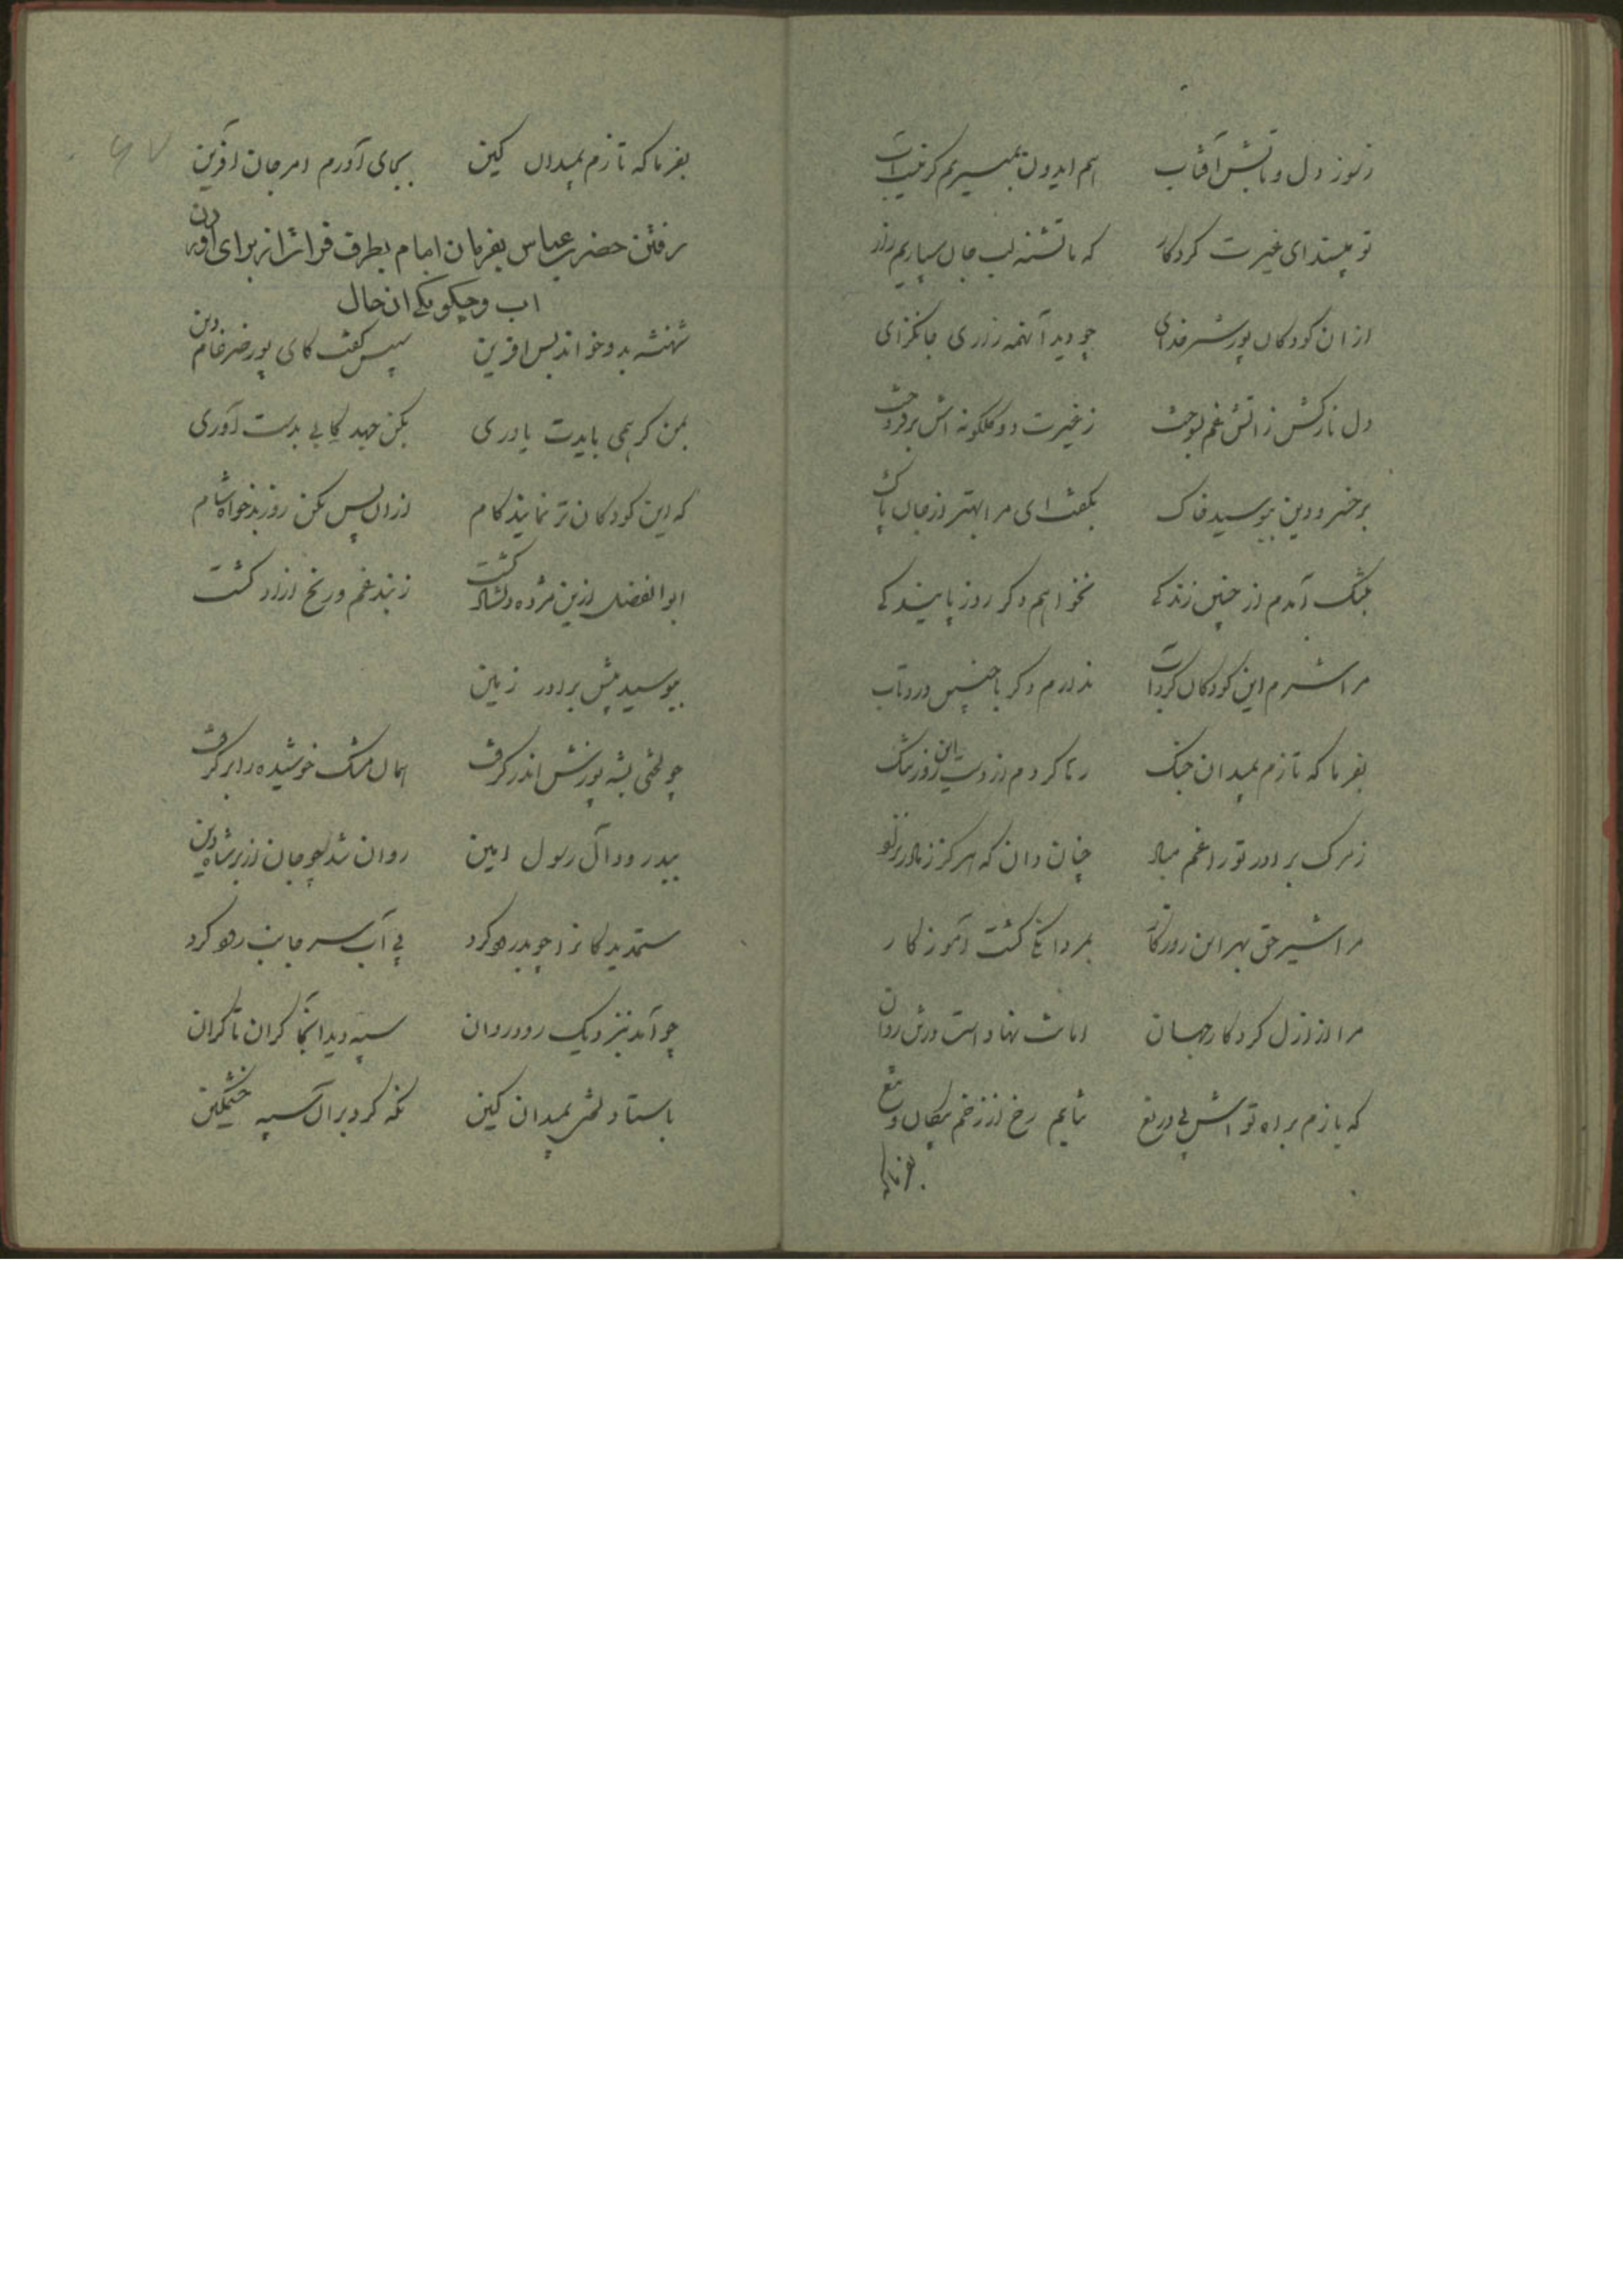 ز سوز دل و تابش آفتاب هم ایدون بمیریم گر نیست آب
تو مپسند ای غیرت کردگار که ما تشنه لب جان سپاریم زار
از ان کودکان پور شیر خدای چو دید آنهمه زاری جانگزای
دل نازکش ز اتش غم بسوخت ز غیرت دو گلگونه اش برفروخت
بر خسرو دین ببوسید خاک بگفت ای مرا بهتر از جان پاک
بتنگ آمدم از چنین زندگی نخواهم دگر روز پایندگی
مرا شرم این کودکان کرد آب ندارم دگر با چنین درد تاب
بفرما که تازم بمیدان جنگ رها کردم از دست این روز تنگ
ز مرگ برادر تو را غم مباد چنان دان که هرگز ز مادر نزاد
مرا شیر حق بهر این روزگار بمردانگی گشت آموزگار
مرا از ازل کردگار جهان امانت نهاد است درتن روان
که بازم براه تو اش بی دریغ نتابم رخ از زخم پیکان و تیغ
بفرما که
۶۷
بفرما که تازم بمیدان کین بجای آورم امر جان آفرین
رفتن حضرت عباس بفرمان امام بطرف فرات از برای آوردن
اب و چگونگی ان حال
شهنشه بدو خواند بس افرین سپس گفت کای پور ضرغام دین
بمن گر همی بایدت یاوری بکن جهد کابی بدست آوری
که این کودکان تر نمایند کام از ان پس بکن روز بدخواه شام
ابوالفضل ازین مژده دلشاد گشت ز بند غم و رنج ازاد گشت
ببوسید پیش برادر زمین
چو لختی بشه پوزش اندر گرفت همان مشک خوشیده را بر گرفت
بپدرود آل رسول امین روان شد چو جان از بر شاه دین
ستمدیدگانرا چو بدرود کرد پی آب سر جانب رود کرد
چو آمد بنزدیک رود روان سپه دید انجا کران تا کران
باستاد لختی بمیدان کین نگه کرد بران سپه خشمگین